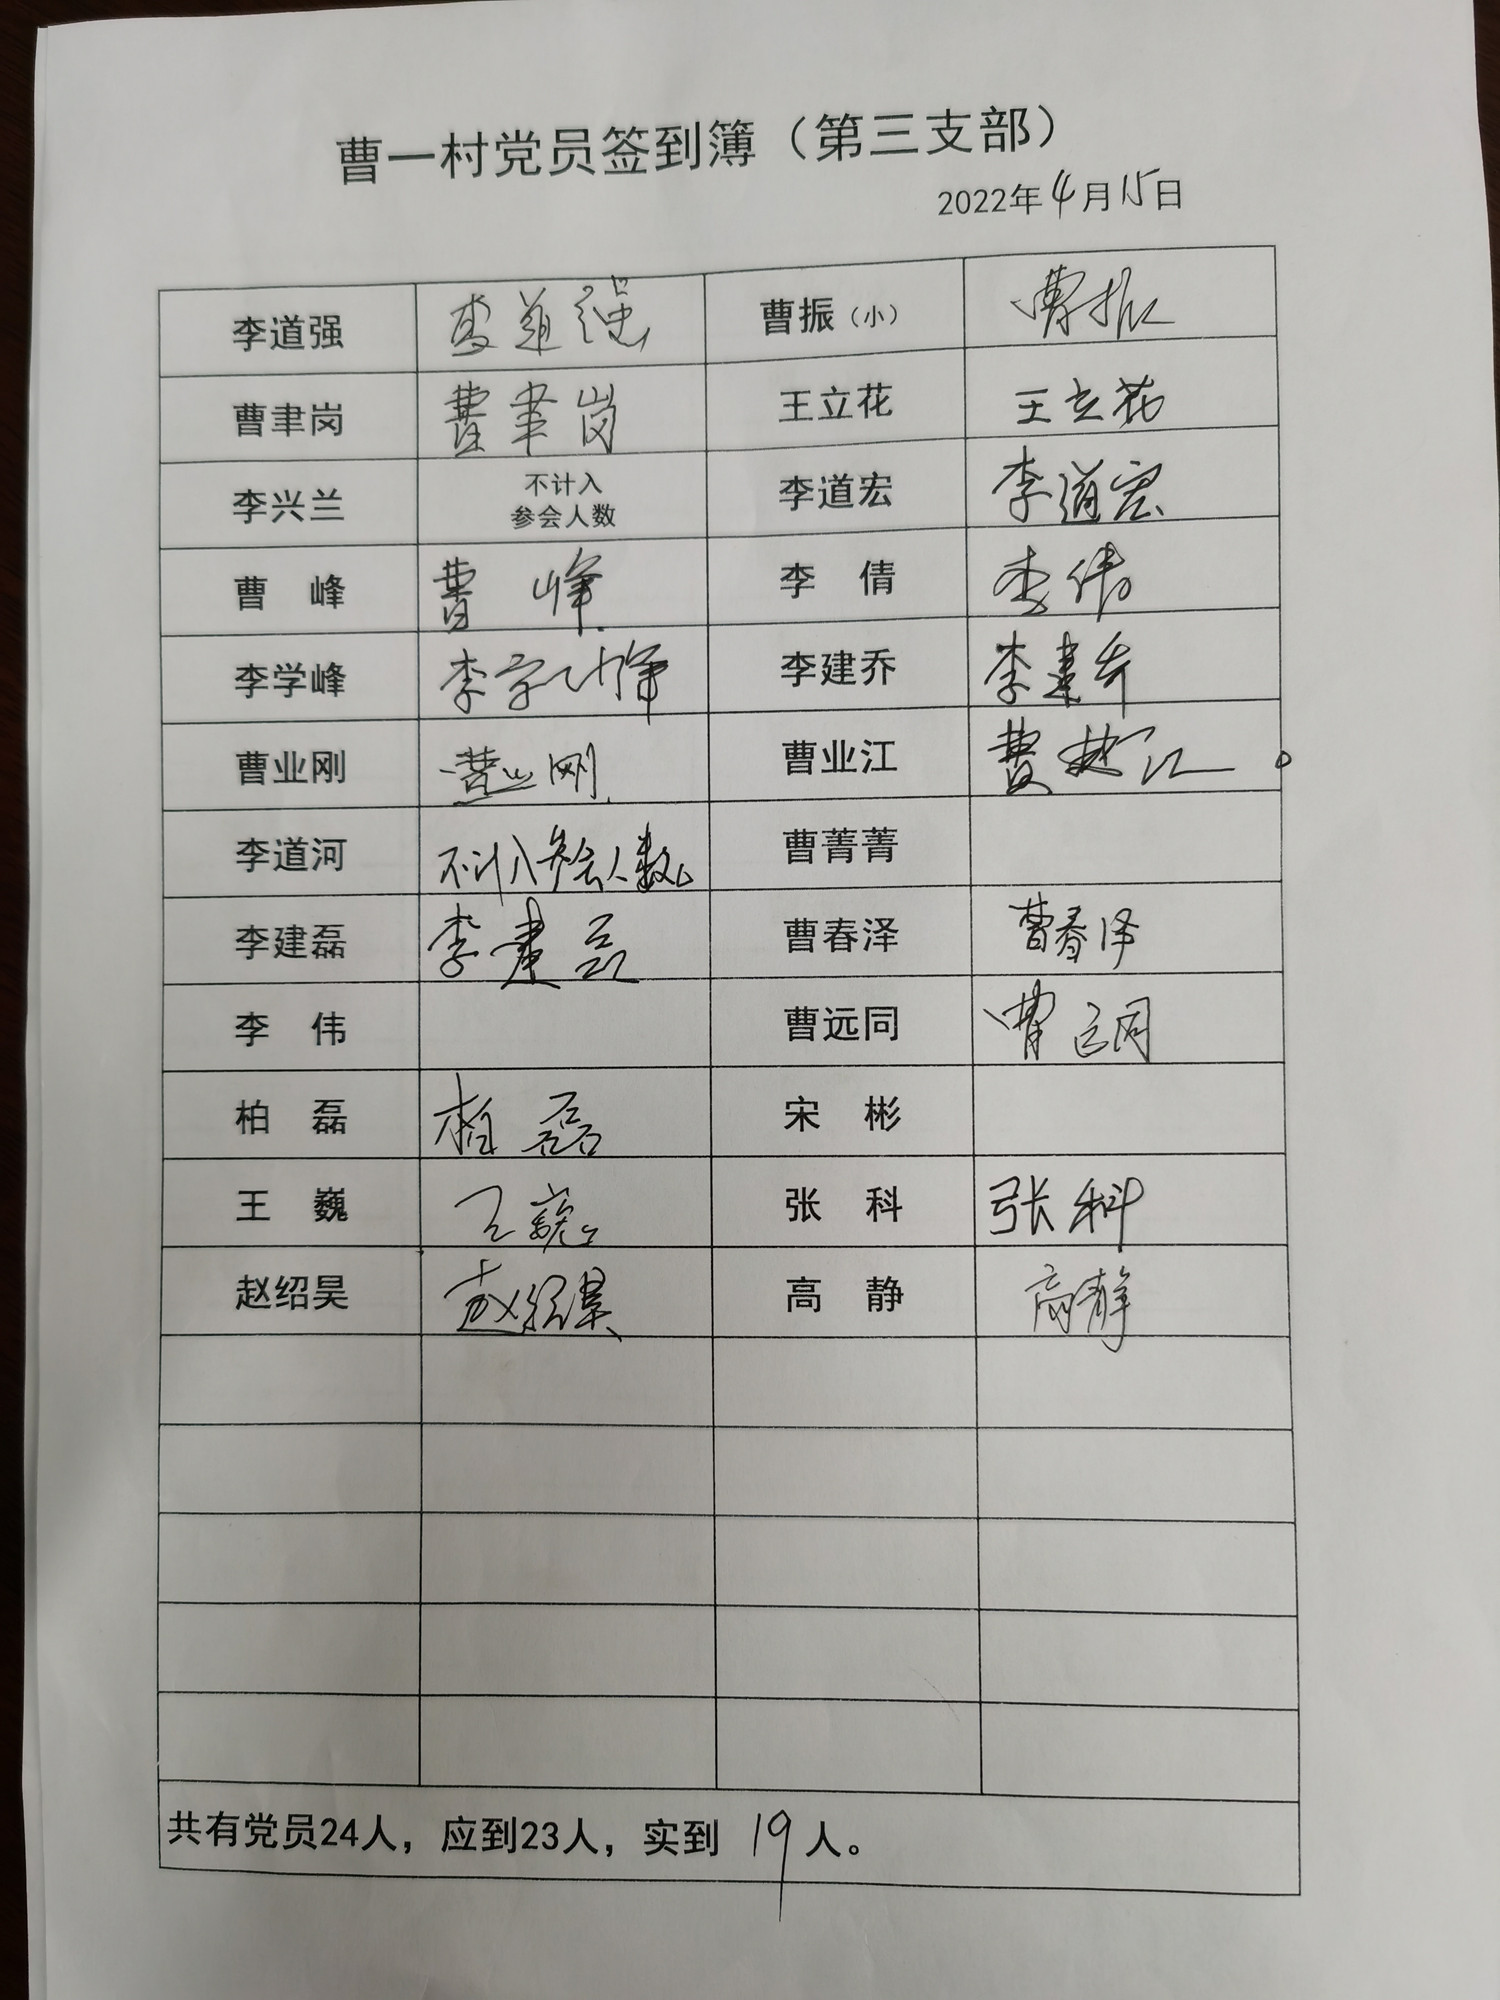 曹一村党员签到簿（第三支部）
2022年4月15日
李道强 李道强 曹振（小） 曹振
曹聿岗 曹聿岗 王立花 王立花
李兴兰 不计入 李道宏 李道宏
参会人数
曹 峰 曹 峰 李 倩 李倩
李学峰 李学峰 李建乔 李建乔
曹业刚 曹业刚 曹业江 曹业江
李道河 不计入参会人数 曹菁菁
李建磊 李建磊 曹春泽 曹春泽
李 伟 曹远同 曹远同
柏 磊 柏磊 宋 彬
王 巍 王巍 张 科 张科
赵绍昊 赵绍昊 高 静 高静
共有党员24人，应到23人，实到 19 人。